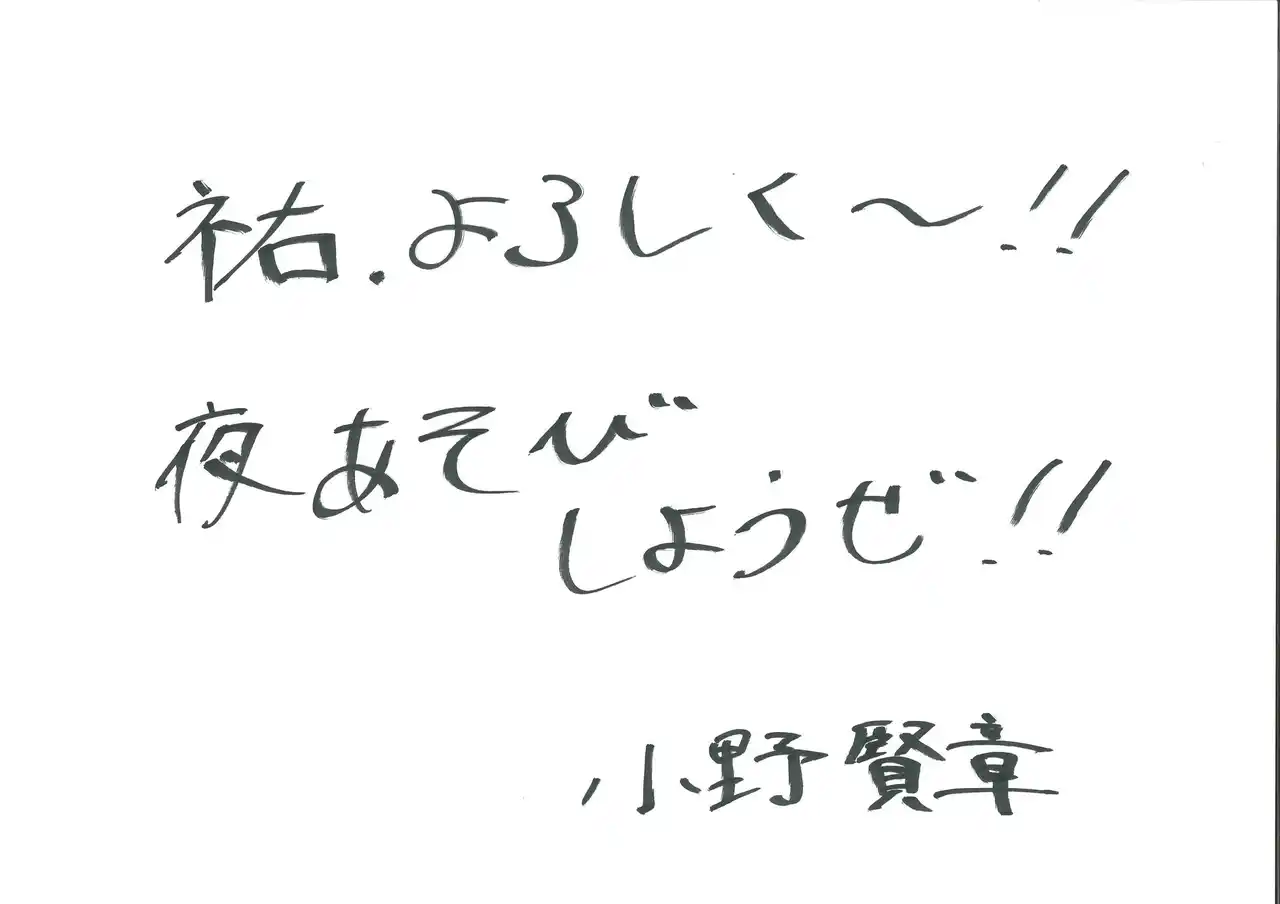 祐.よろしく〜!!
夜あそび
しようぜ!!
小野賢章